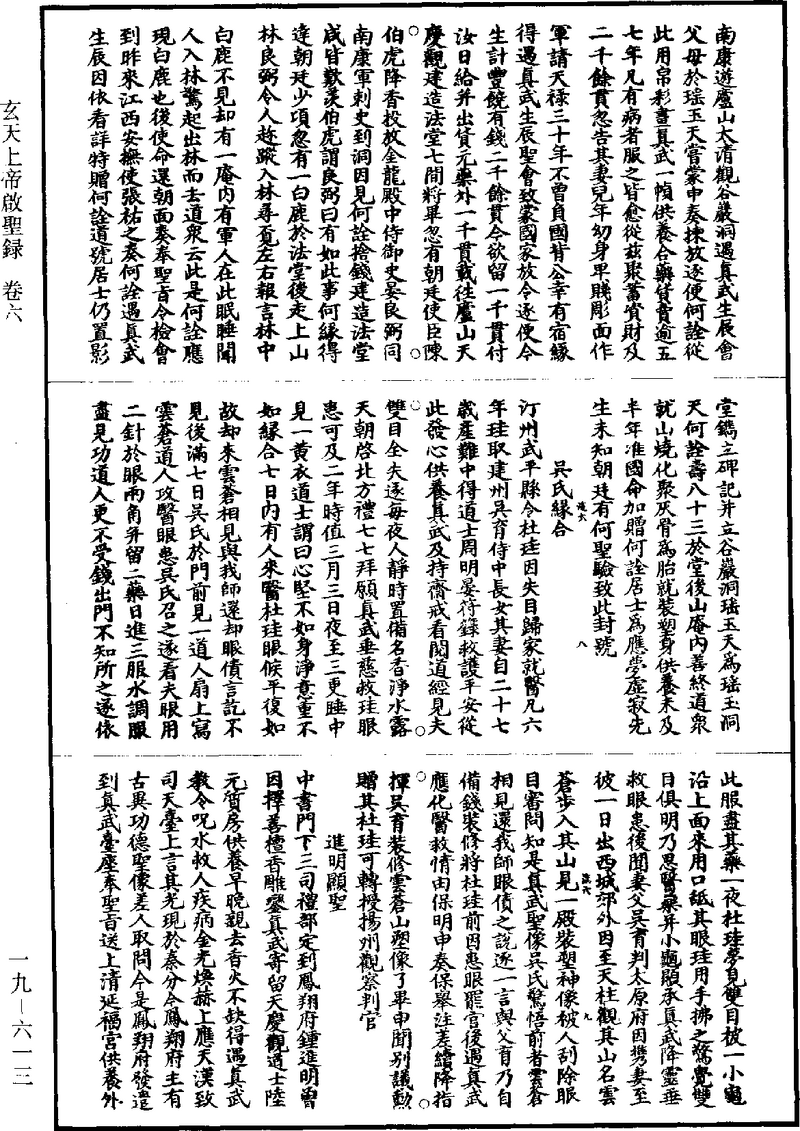 南康遊廬山太清觀谷巖洞遇真武生辰會
父母於瑤玉天嘗蒙申奏揀放逐便何詮從
此用帛彩畫真武一幀供養合藥貨賣逾五
七年凡有病者服之皆愈從茲聚蓄資財及
二千餘貫忽告其妻兒年幼身卑賤彫面作
軍請天祿三十年不曾負國背公幸有宿緣
得遇真武生辰聖會致蒙國家放令逐便今
生計豐饒有錢二千餘貫今欲留一千貫付
汝日給并出貨元藥外一千貫載往廬山天
慶觀建造法堂七間將畢忽有朝廷使臣陳
伯虎降香投放金龍殿中侍御史晏良弼同
南康軍刺史到洞因見何詮捨錢建造法堂
咸皆歎羨伯虎謂良弼曰有如此事何緣得
達朝廷少項忽有一白鹿於法堂後走上山
林良弼令人趂蹤入林尋覓左右報言林中
白鹿不見却有一庵內有軍人在此眠睡聞
人入林驚起出林而去道衆云此是何詮應
現白鹿也後使命還朝面奏奉聖旨令檢會
到昨來江西安撫使張祐之奏何詮遇真武
生辰因依看詳特贈何詮道號居士仍置影
堂鐫立碑記并立谷巖洞瑤玉天爲瑤玉洞
天何詮壽八十三於堂後山庵內善終道衆
就山燒化聚灰骨爲胎就裝塑身供養未及
半年准國命加贈何詮居士爲應夢虛寂先
生未知朝廷有何聖驗致此封號
吳氏緣合
汀州武平縣令杜珪因失目歸家就醫凡六
年珪取建州吳育侍中長女其妻自二十七
歲產難中得道士周明晏符籙救護平安從
此發心供養真武及持齋戒看閱道經見夫
雙目全失逐每夜人靜時置備名香淨水露
天朝啓北方禮七七拜願真武垂慈救珪眼
患可及二年時值三月三日夜至三更睡中
見一黃衣道士謂曰心堅不如身淨意重不
如緣合七日內有人來醫杜珪眼候平復如
故却來雲蒼相見與我師還却眼債言訖不
見後滿七日吳氏於門前見一道人扇上寫
雲蒼道人攻醫眼患吳氏召之遂看夫眼用
二針於眼兩角并留二藥日進三服水調服
盡見功道人更不受錢出門不知所之遂依
此服盡其藥一夜杜珪夢見雙目被一小龜
沿上面來用口舐其眼珪用手拂之驚覺雙
目俱明乃思醫藥并小龜顯承真武降靈垂
救眼患後聞妻父吳育判太原府因携妻至
彼一日出西城郊外因至天柱觀其山名雲
蒼步入其山見一殿裝塑神像被人刮除眼
目審問知是真武聖像吳氏驚悟前者雲蒼
相見還我師眼債之說逐一言與父育乃自
備錢裝修將杜珪前因患眼罷官後遇真武
應化醫救情由保明申奏保舉注差續降指
揮吳育裝修雲蒼山塑像了畢申聞別議勳
贈其杜珪可轉授揚州觀察判官
進明顯聖
中書門下三司禮部定到鳳翔府鍾進明曾
因擇善檀香雕鑾真武寄留天慶觀道士陸
元質房供養早晚親去香火不缺得遇真武
教令呪水救人疾病金光煥赫上應天漢致
司天臺上言其光現於秦分今鳳翔府主有
古異功德聖像差人取問今是鳳翔府發遣
到真武臺座奉聖旨送上清延福宮供養外
玄天上帝啟聖録　卷六
一九—六一三